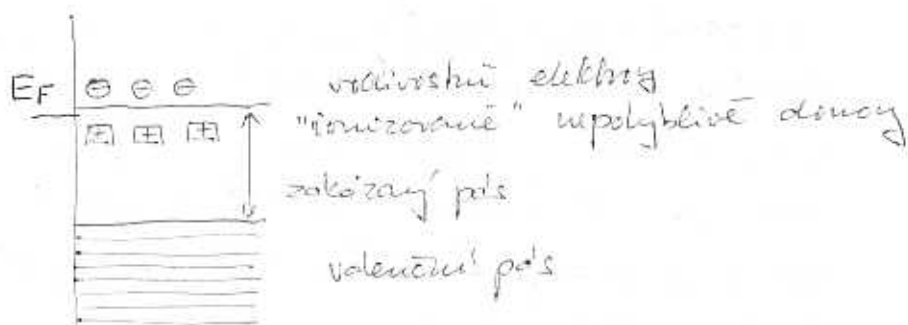 E_F ⊖ ⊖ ⊖ vodivostní elektrony
+ + + "ionizované" nepohyblivé donory
zakázaný pás
valenční pás